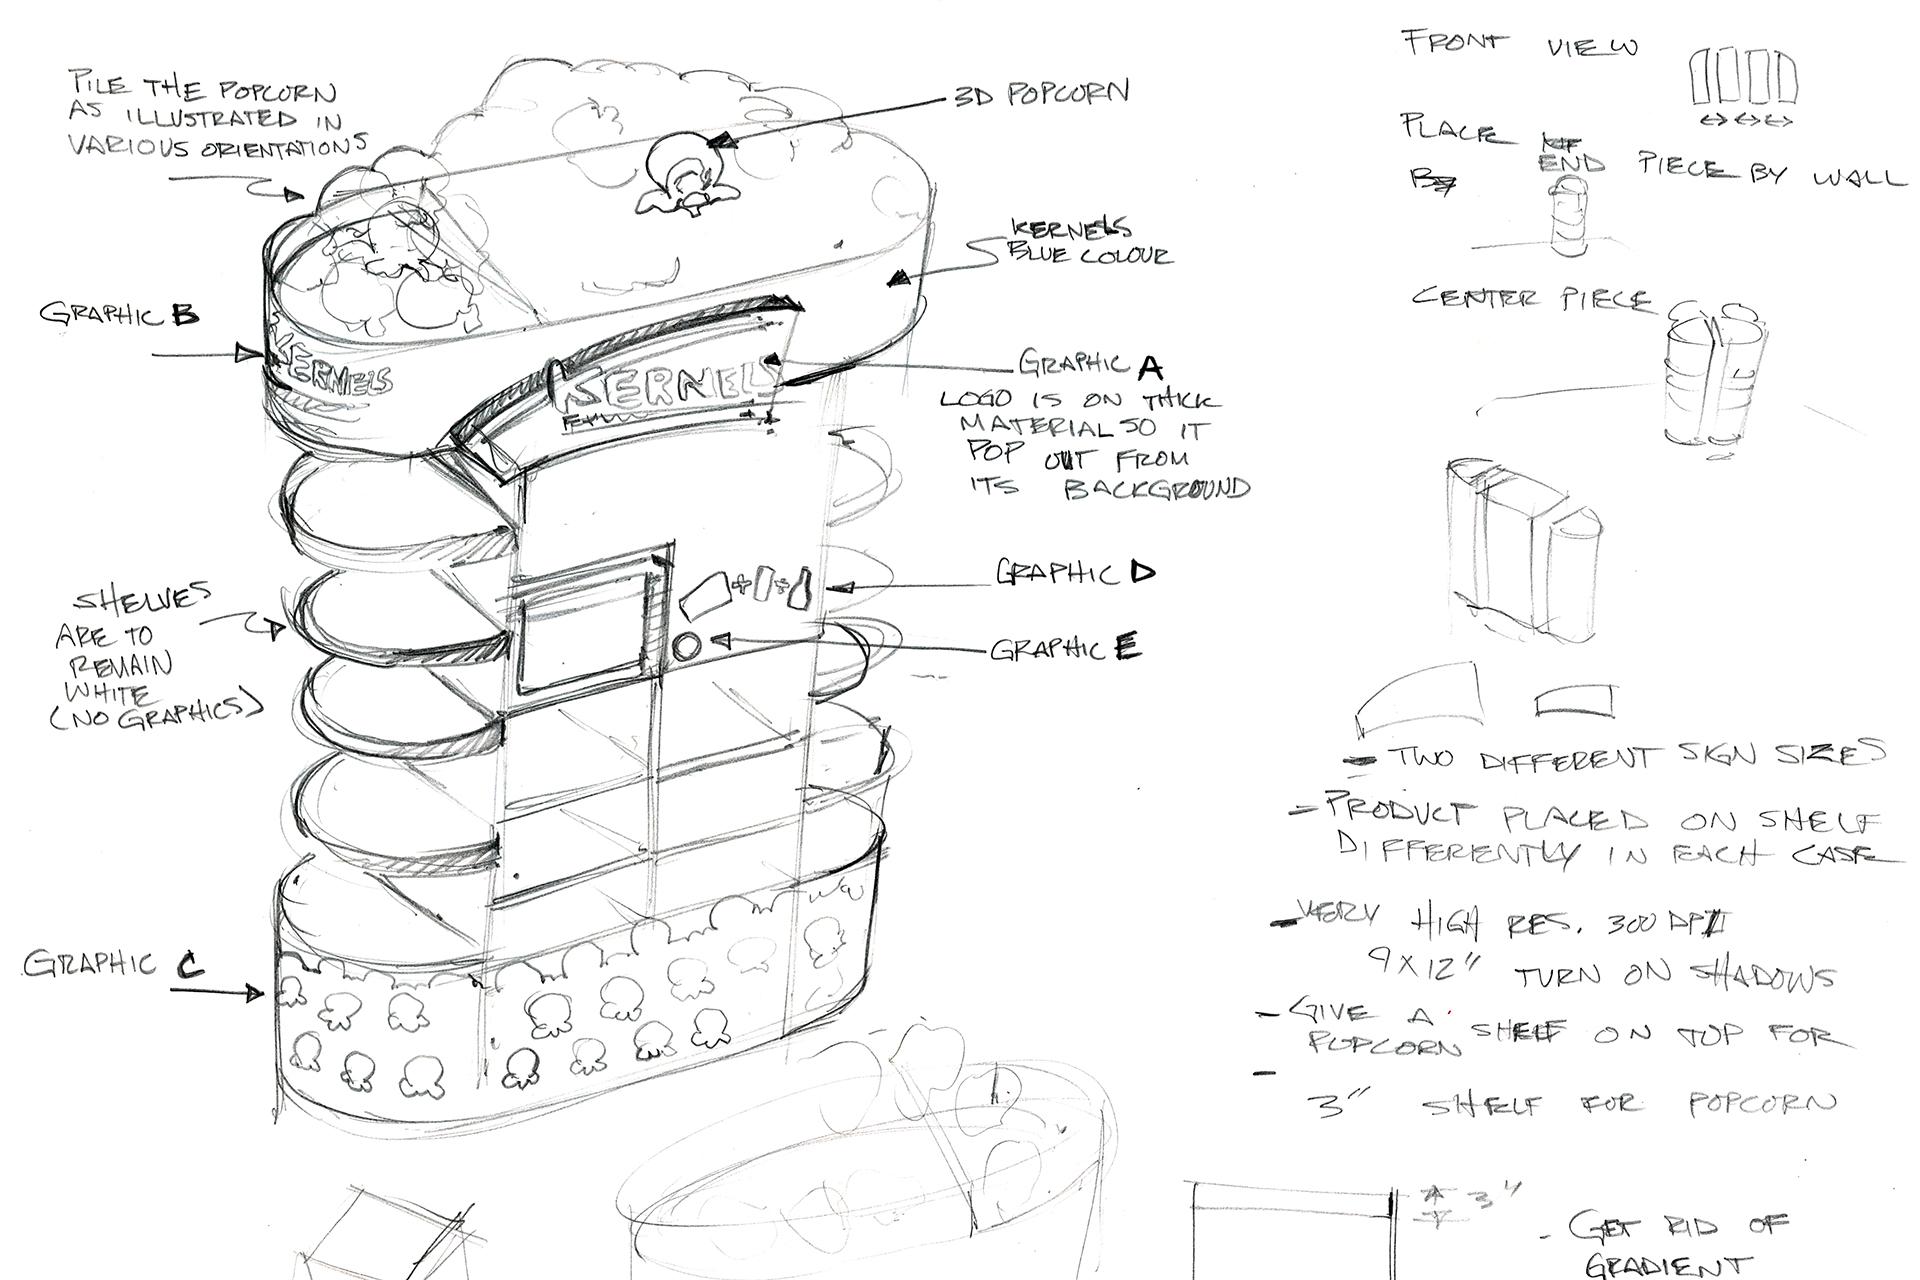 PILE THE POPCORN
AS ILLUSTRATED IN
VARIOUS ORIENTATIONS
3D POPCORN
KERNELS
BLUE COLOUR
GRAPHIC B
KERNELS
KERNELS
GRAPHIC A
LOGO IS ON THICK
MATERIAL SO IT
POP OUT FROM
ITS BACKGROUND
GRAPHIC D
GRAPHIC E
SHELVES
ARE TO
REMAIN
WHITE
(NO GRAPHICS)
GRAPHIC C
FRONT VIEW
PLACE
END PIECE BY WALL
CENTER PIECE
- TWO DIFFERENT SIGN SIZES
- PRODUCT PLACED ON SHELF
DIFFERENTLY IN EACH CASE
- VERY HIGH RES. 300 DPI
9 X 12" TURN ON SHADOWS
- GIVE A SHELF ON TOP FOR
POPCORN
-
3" SHELF FOR POPCORN
3"
- GET RID OF
GRADIENT